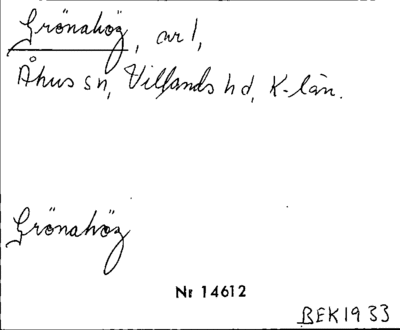 Grönahög, avr 1,
Åhus sn, Villands hd, K-län.
Grönahög
Nr 14612
BEK1933